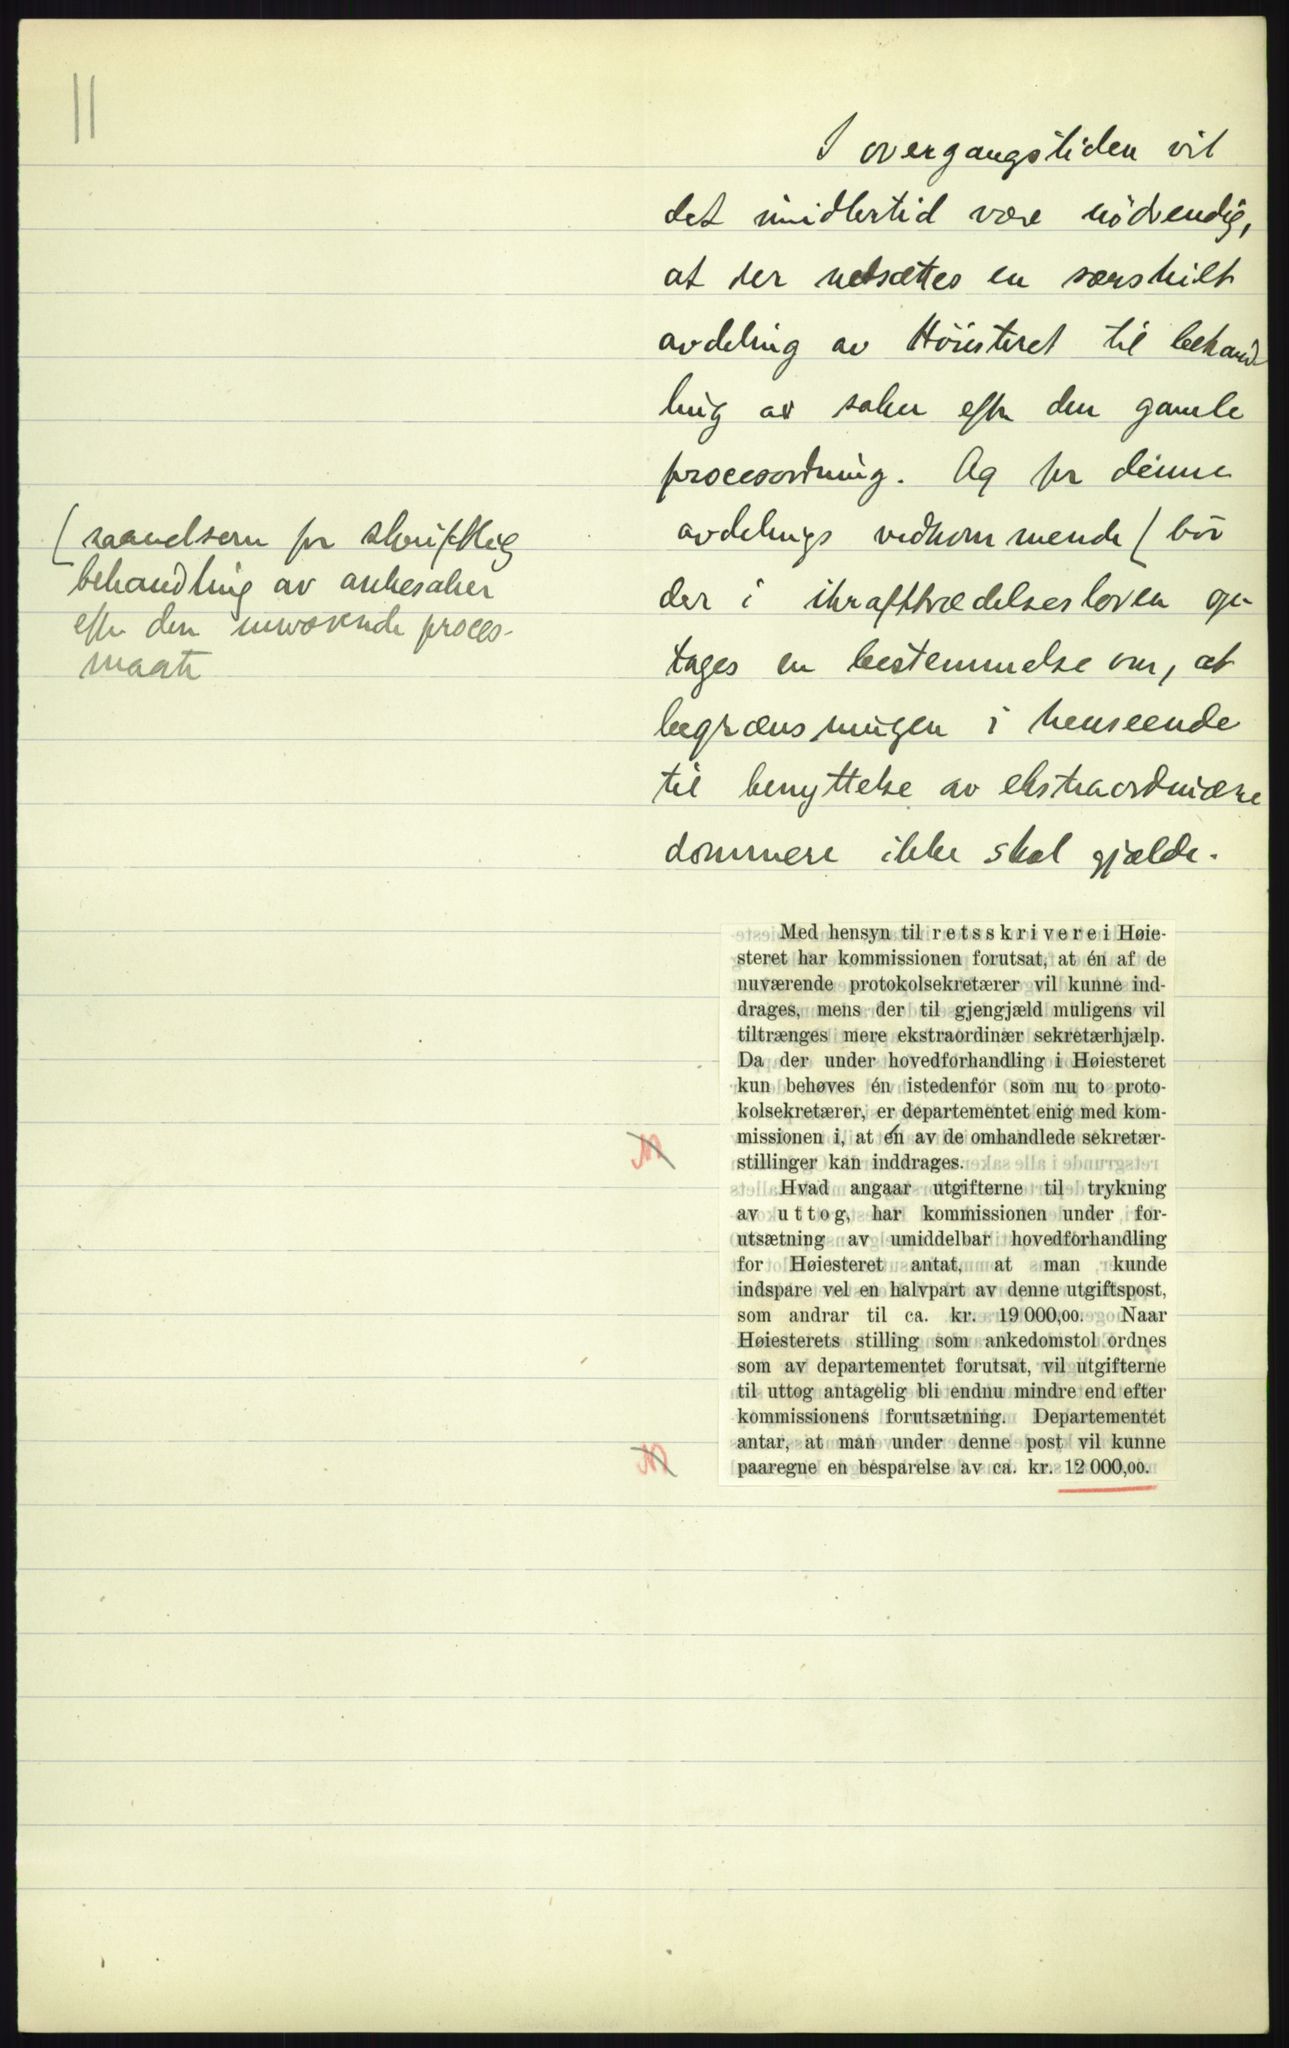 11
I overgangstiden vil
det imidlertid være nödvendig,
at der nedsættes en særskilt
avdeling av Höiesteret til behand-
ling av saker efter den gamle
procesordning. Og for denne
avdelings vedkommende / bör
der i ikrafttrædelsesloven op-
tages en bestemmelse om, at
begrænsningen i henseende
til benyttelse av ekstraordinære
dommere ikke skal gjælde.
/ saavelsom for skriftlig
behandling av ankesaker
efter den nuværende proces-
maate
Med hensyn til retsskrivere i Høie-
steret har kommissionen forutsat, at én af de
nuværende protokolsekretærer vil kunne ind-
drages, mens der til gjengjæld muligens vil
tiltrænges mere ekstraordinær sekretærhjælp.
Da der under hovedforhandling i Høiesteret
kun behøves én istedenfor som nu to proto-
kolsekretærer, er departementet enig med kom-
missionen i, at én av de omhandlede sekretær-
stillinger kan inddrages.
Hvad angaar utgifterne til trykning
av uttog, har kommissionen under for-
utsætning av umiddelbar hovedforhandling
for Høiesteret antat, at man kunde
indspare vel en halvpart av denne utgiftspost,
som andrar til ca. kr. 19 000,00. Naar
Høiesterets stilling som ankedomstol ordnes
som av departementet forutsat, vil utgifterne
til uttog antagelig bli endnu mindre end efter
kommissionens forutsætning. Departementet
antar, at man under denne post vil kunne
paaregne en besparelse av ca. kr. 12 000,00.